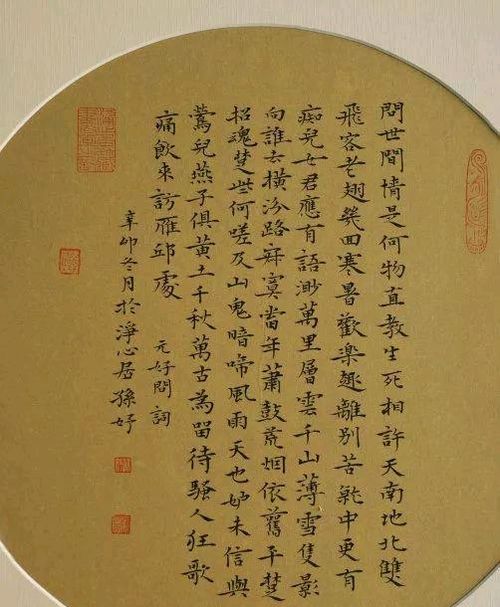 問世間情是何物直教生死相許天南地北雙
飛客老翅幾回寒暑歡樂趣離別苦就中更有
痴兒女君應有語渺萬里層雲千山薄雪隻影
向誰去橫汾路寂寞當年蕭鼓荒烟依舊平楚
招魂楚些何嗟及山鬼暗啼風雨天也妒未信與
鶯兒燕子俱黃土千秋萬古為留待騷人狂歌
痛飲來訪雁邱處
元好問詞
辛卯冬月於淨心居孫妤